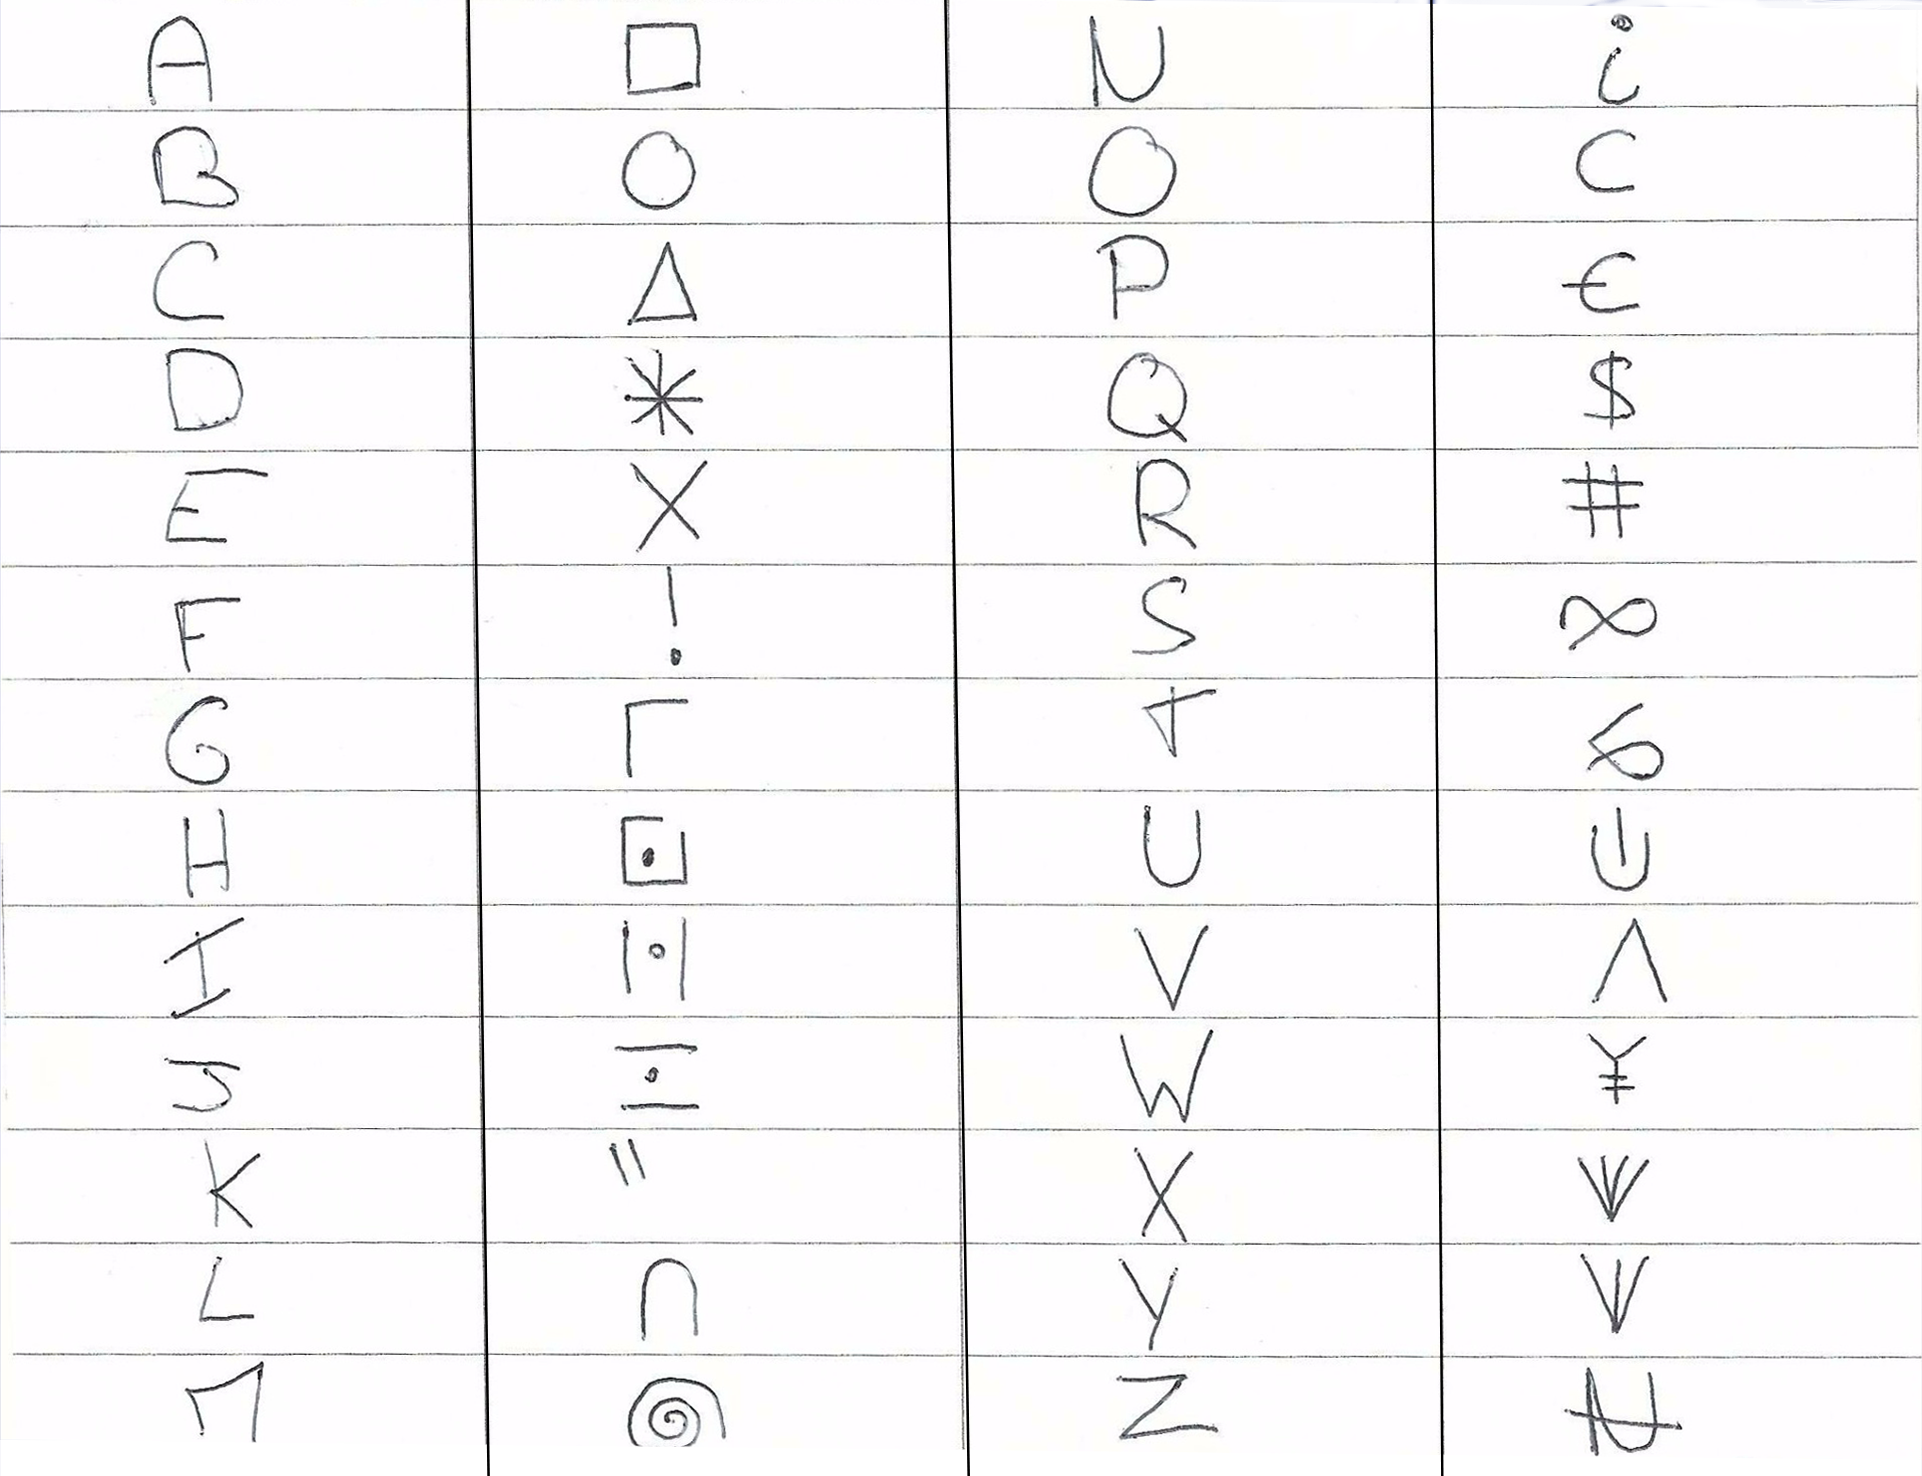 A □ N ¿
B ○ O C
C △ P €
D * Q $
E X R #
F ! S ∞
G Γ T
H U
I |∘| V Λ
J W ¥
K " X
L ∩ Y
M Z N